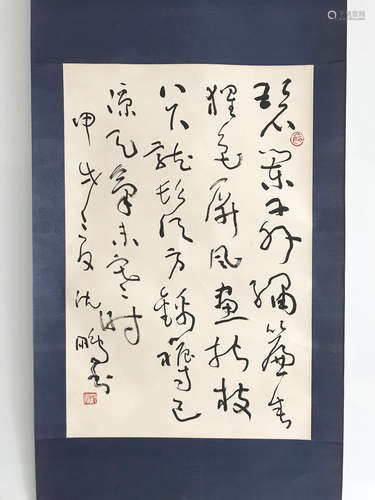 碧闌干外繡簾垂
猩色屏風畫折枝
八尺龍鬚方錦褥已
涼天氣未寒時
甲戌夏沈鵬書